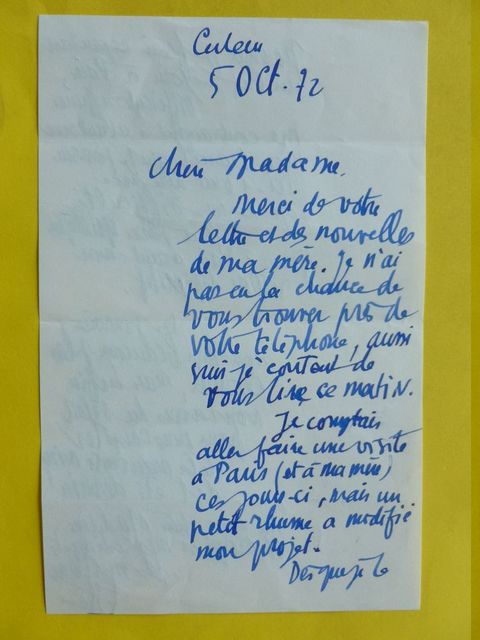 5 Oct. 72
Chère Madame,
Merci de votre
lettre et des nouvelles
de ma mère. Je n'ai
pas eu la chance de
vous trouver près de
votre téléphone, aussi
suis je content de
vous lire ce matin.
Je comptais
aller faire une visite
à Paris (et à ma mère)
ces jours-ci, mais un
petit rhume a modifié
mon projet.
Dès que je le